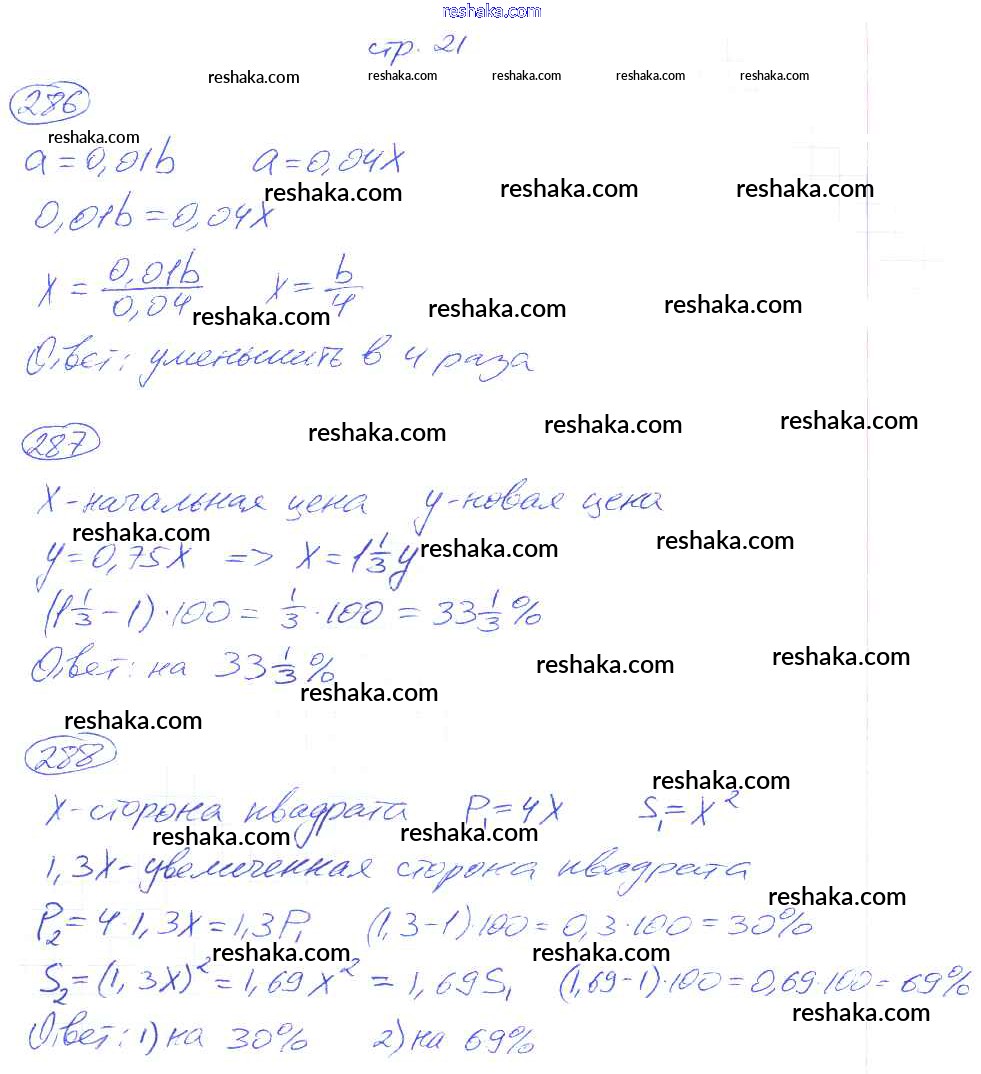 reshaka.com
стр. 21
reshaka.com reshaka.com reshaka.com reshaka.com reshaka.com
286
reshaka.com
a = 0,01b a = 0,04x
reshaka.com reshaka.com reshaka.com
0,01b = 0,04x
x = 0,01b/0,04 x = b/4
reshaka.com reshaka.com reshaka.com
Ответ: уменьшить в 4 раза
reshaka.com reshaka.com reshaka.com
287
x - начальная цена y - новая цена
reshaka.com reshaka.com reshaka.com
y = 0,75x => x = 1 1/3 y
(1 1/3 - 1) · 100 = 1/3 · 100 = 33 1/3 %
Ответ: на 33 1/3 %
reshaka.com reshaka.com reshaka.com
reshaka.com
288
reshaka.com
x - сторона квадрата P₁ = 4x S₁ = x²
reshaka.com reshaka.com
1,3x - увеличенная сторона квадрата
reshaka.com
P₂ = 4 · 1,3x = 1,3P₁ (1,3 - 1) · 100 = 0,3 · 100 = 30%
reshaka.com reshaka.com
S₂ = (1,3x)² = 1,69x² = 1,69S₁ (1,69 - 1) · 100 = 0,69 · 100 = 69%
reshaka.com
Ответ: 1) на 30% 2) на 69%